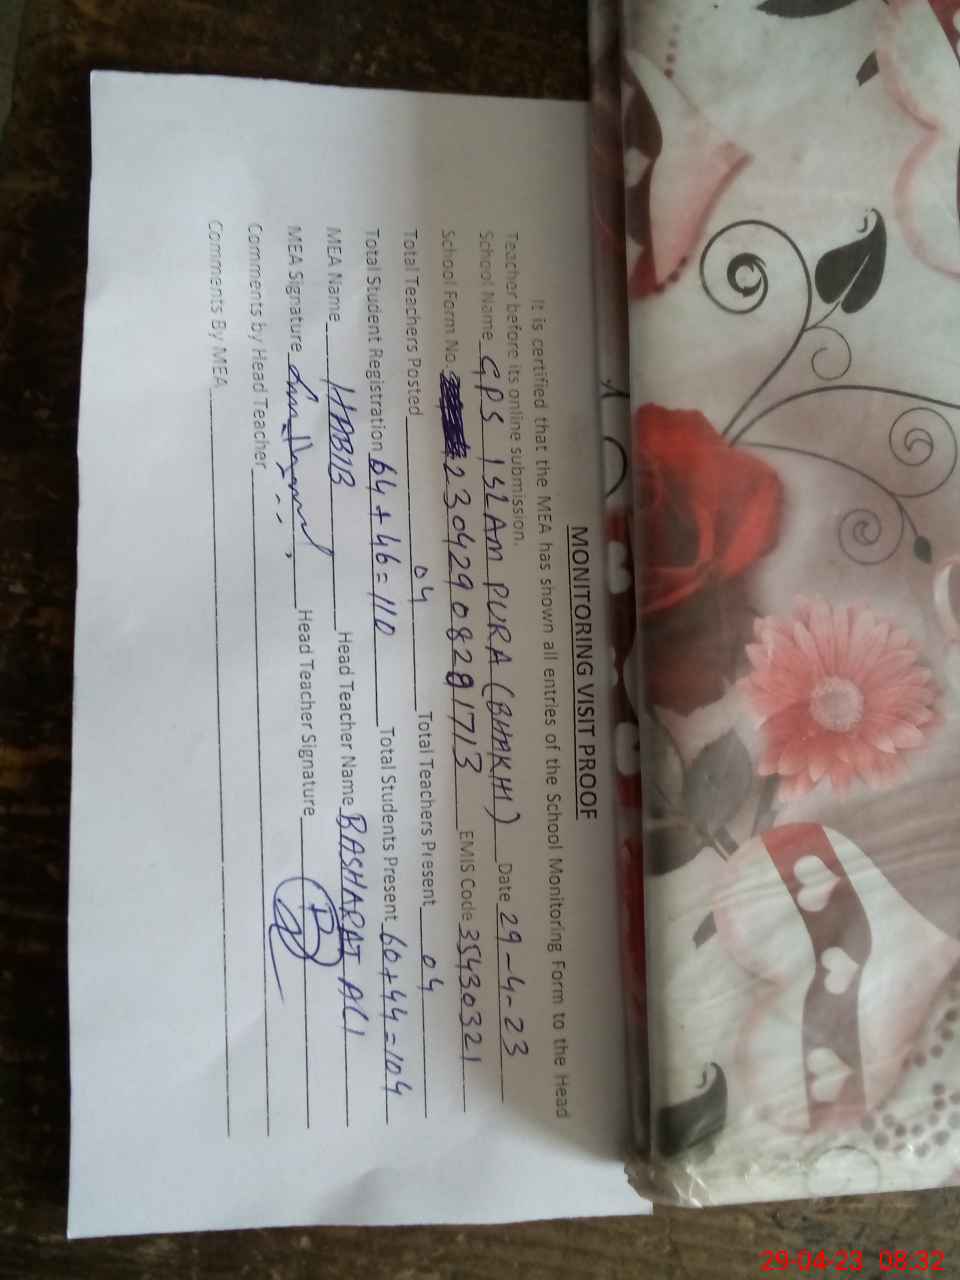 MONITORING VISIT PROOF
It is certified that the MEA has shown all entries of the School Monitoring Form to the Head
Teacher before its online submission.
School Name GPS ISLAM PURA (BHAKHI) Date 29-4-23
School Form No. 23042908281713 EMIS Code 35430321
Total Teachers Posted 04 Total Teachers Present 04
Total Student Registration 64+46=110 Total Students Present 60+44=104
MEA Name HABIB Head Teacher Name BASHARAT ALI
MEA Signature Head Teacher Signature
Comments by Head Teacher
Comments By MEA
29-04-23 08:32